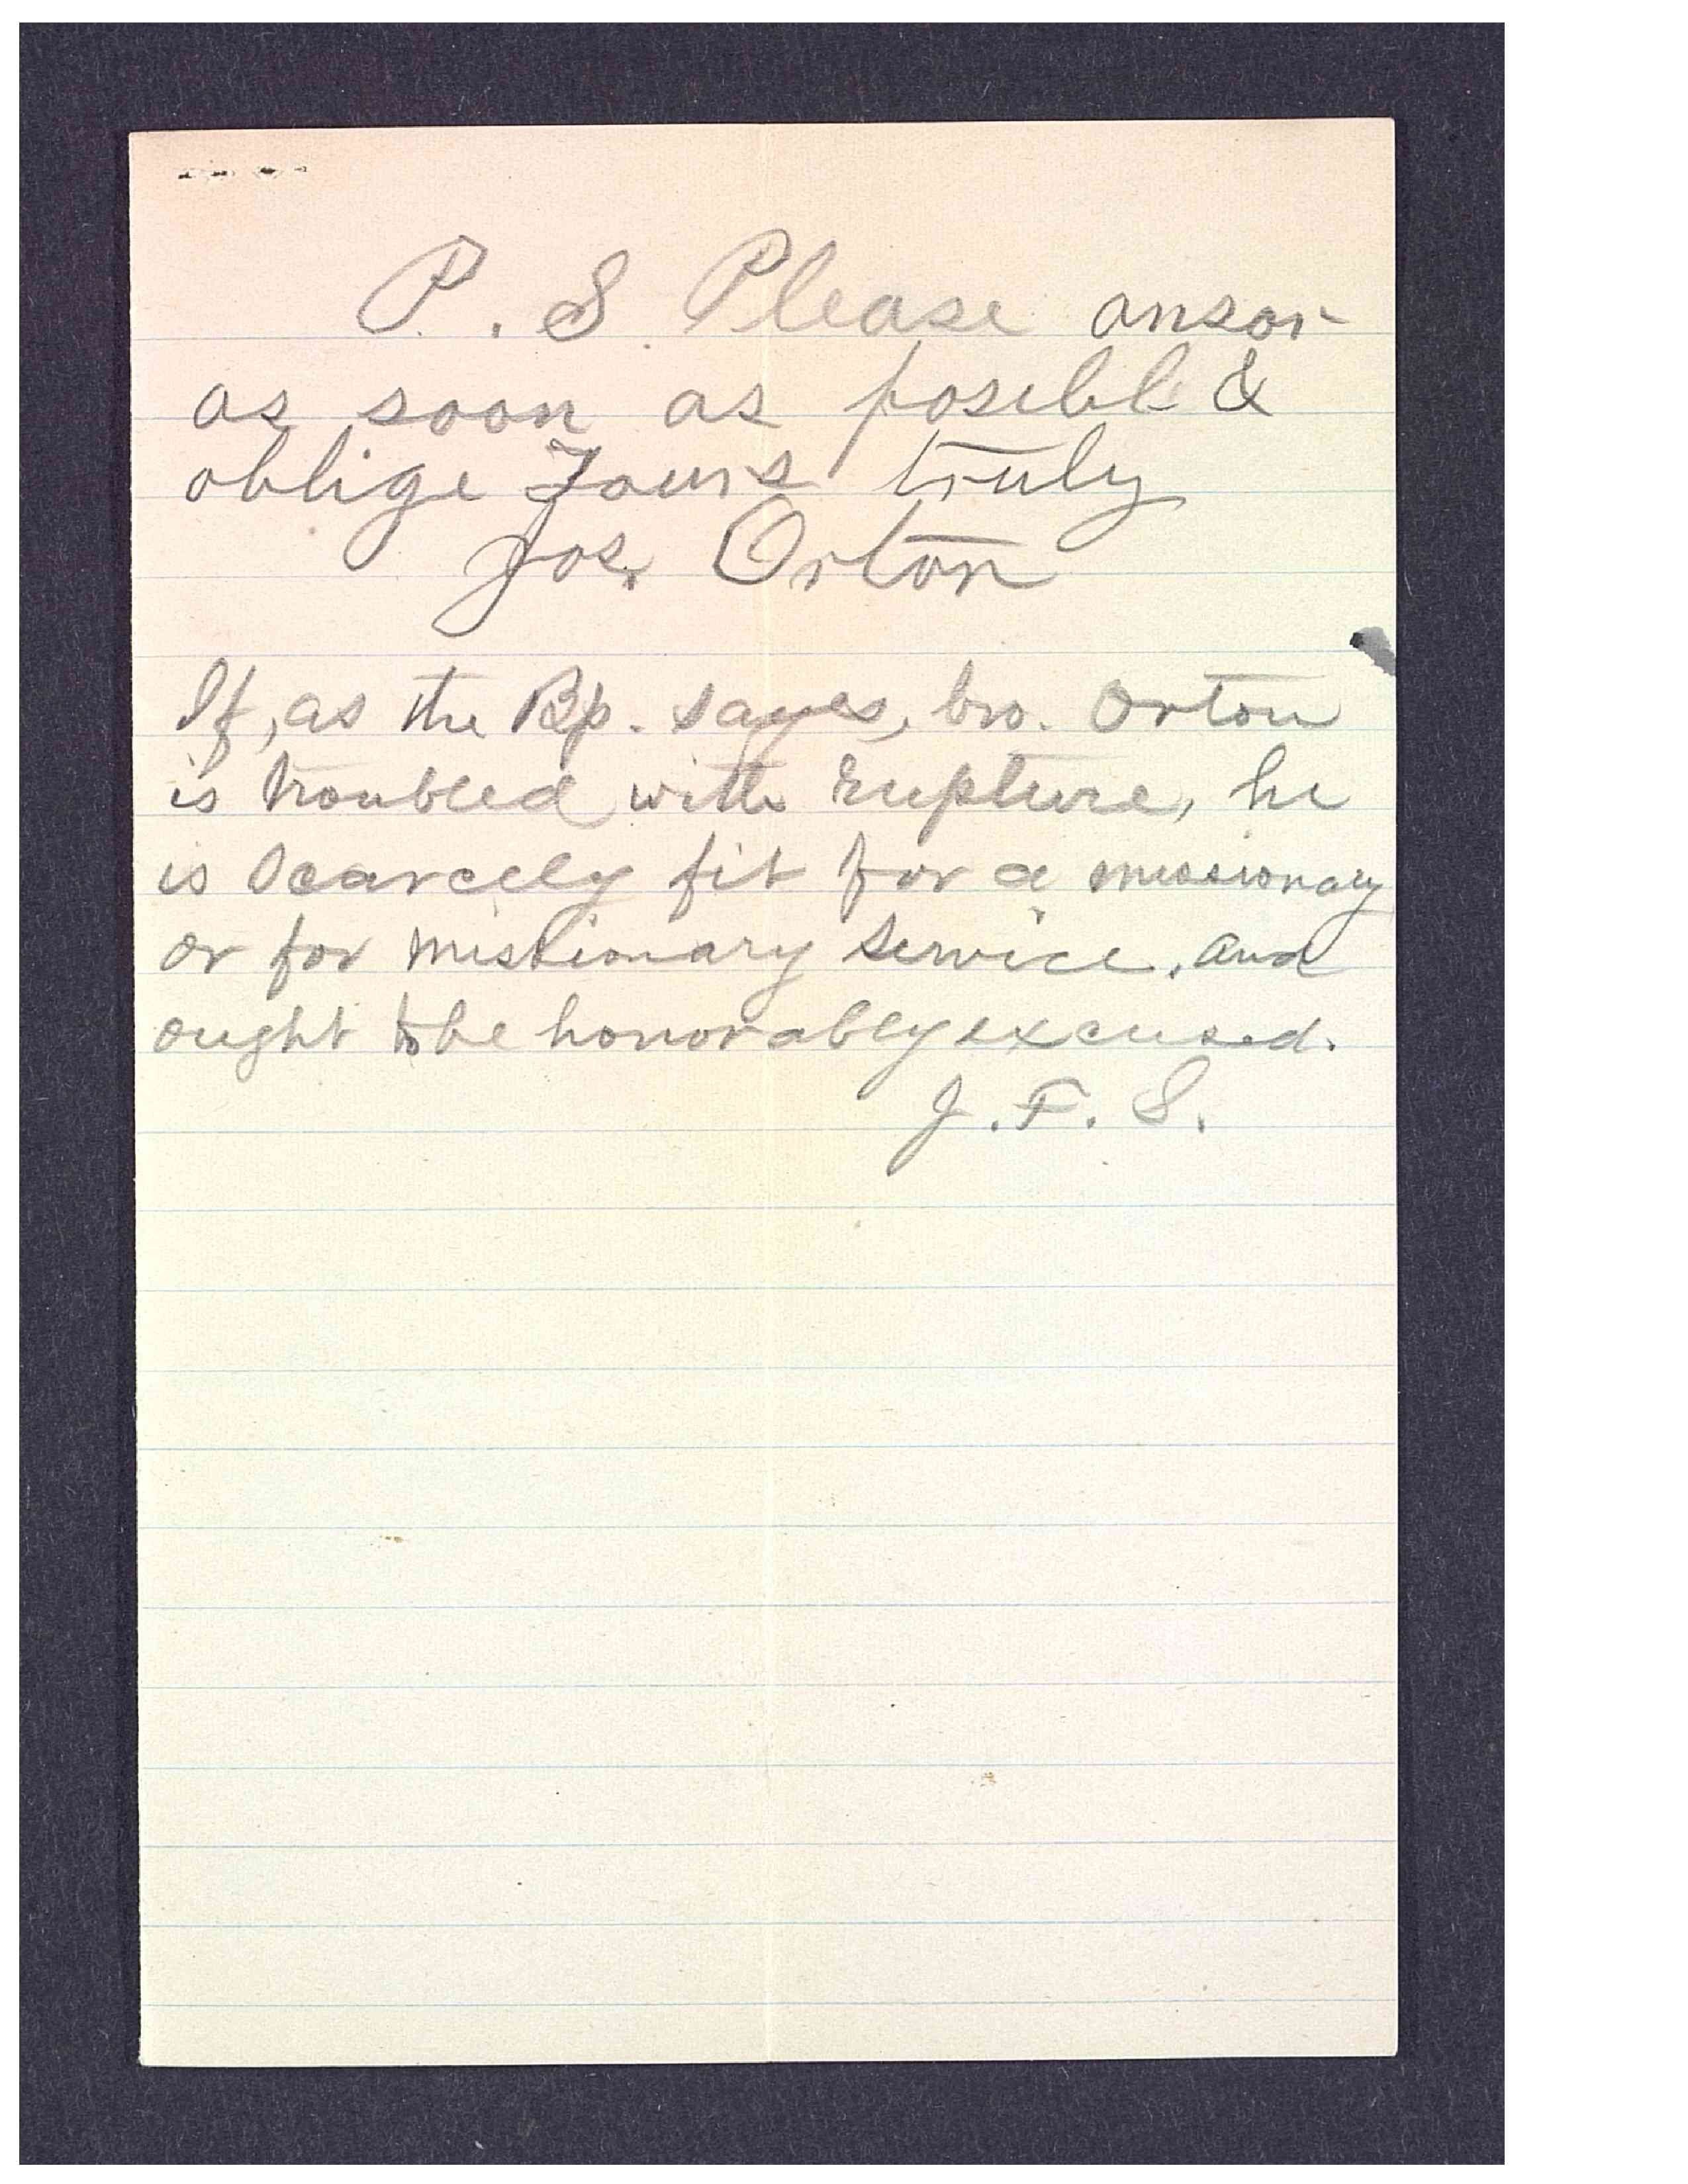 P. S. Please ansor
as soon as posibl &
oblige Yours truly
Jos. Orton
If, as the Bp. sayes, bro. Orton
is troubled with rupture, he
is scarcely fit for a missionary
or for missionary service, and
ought to be honorably excused.
J. F. S.